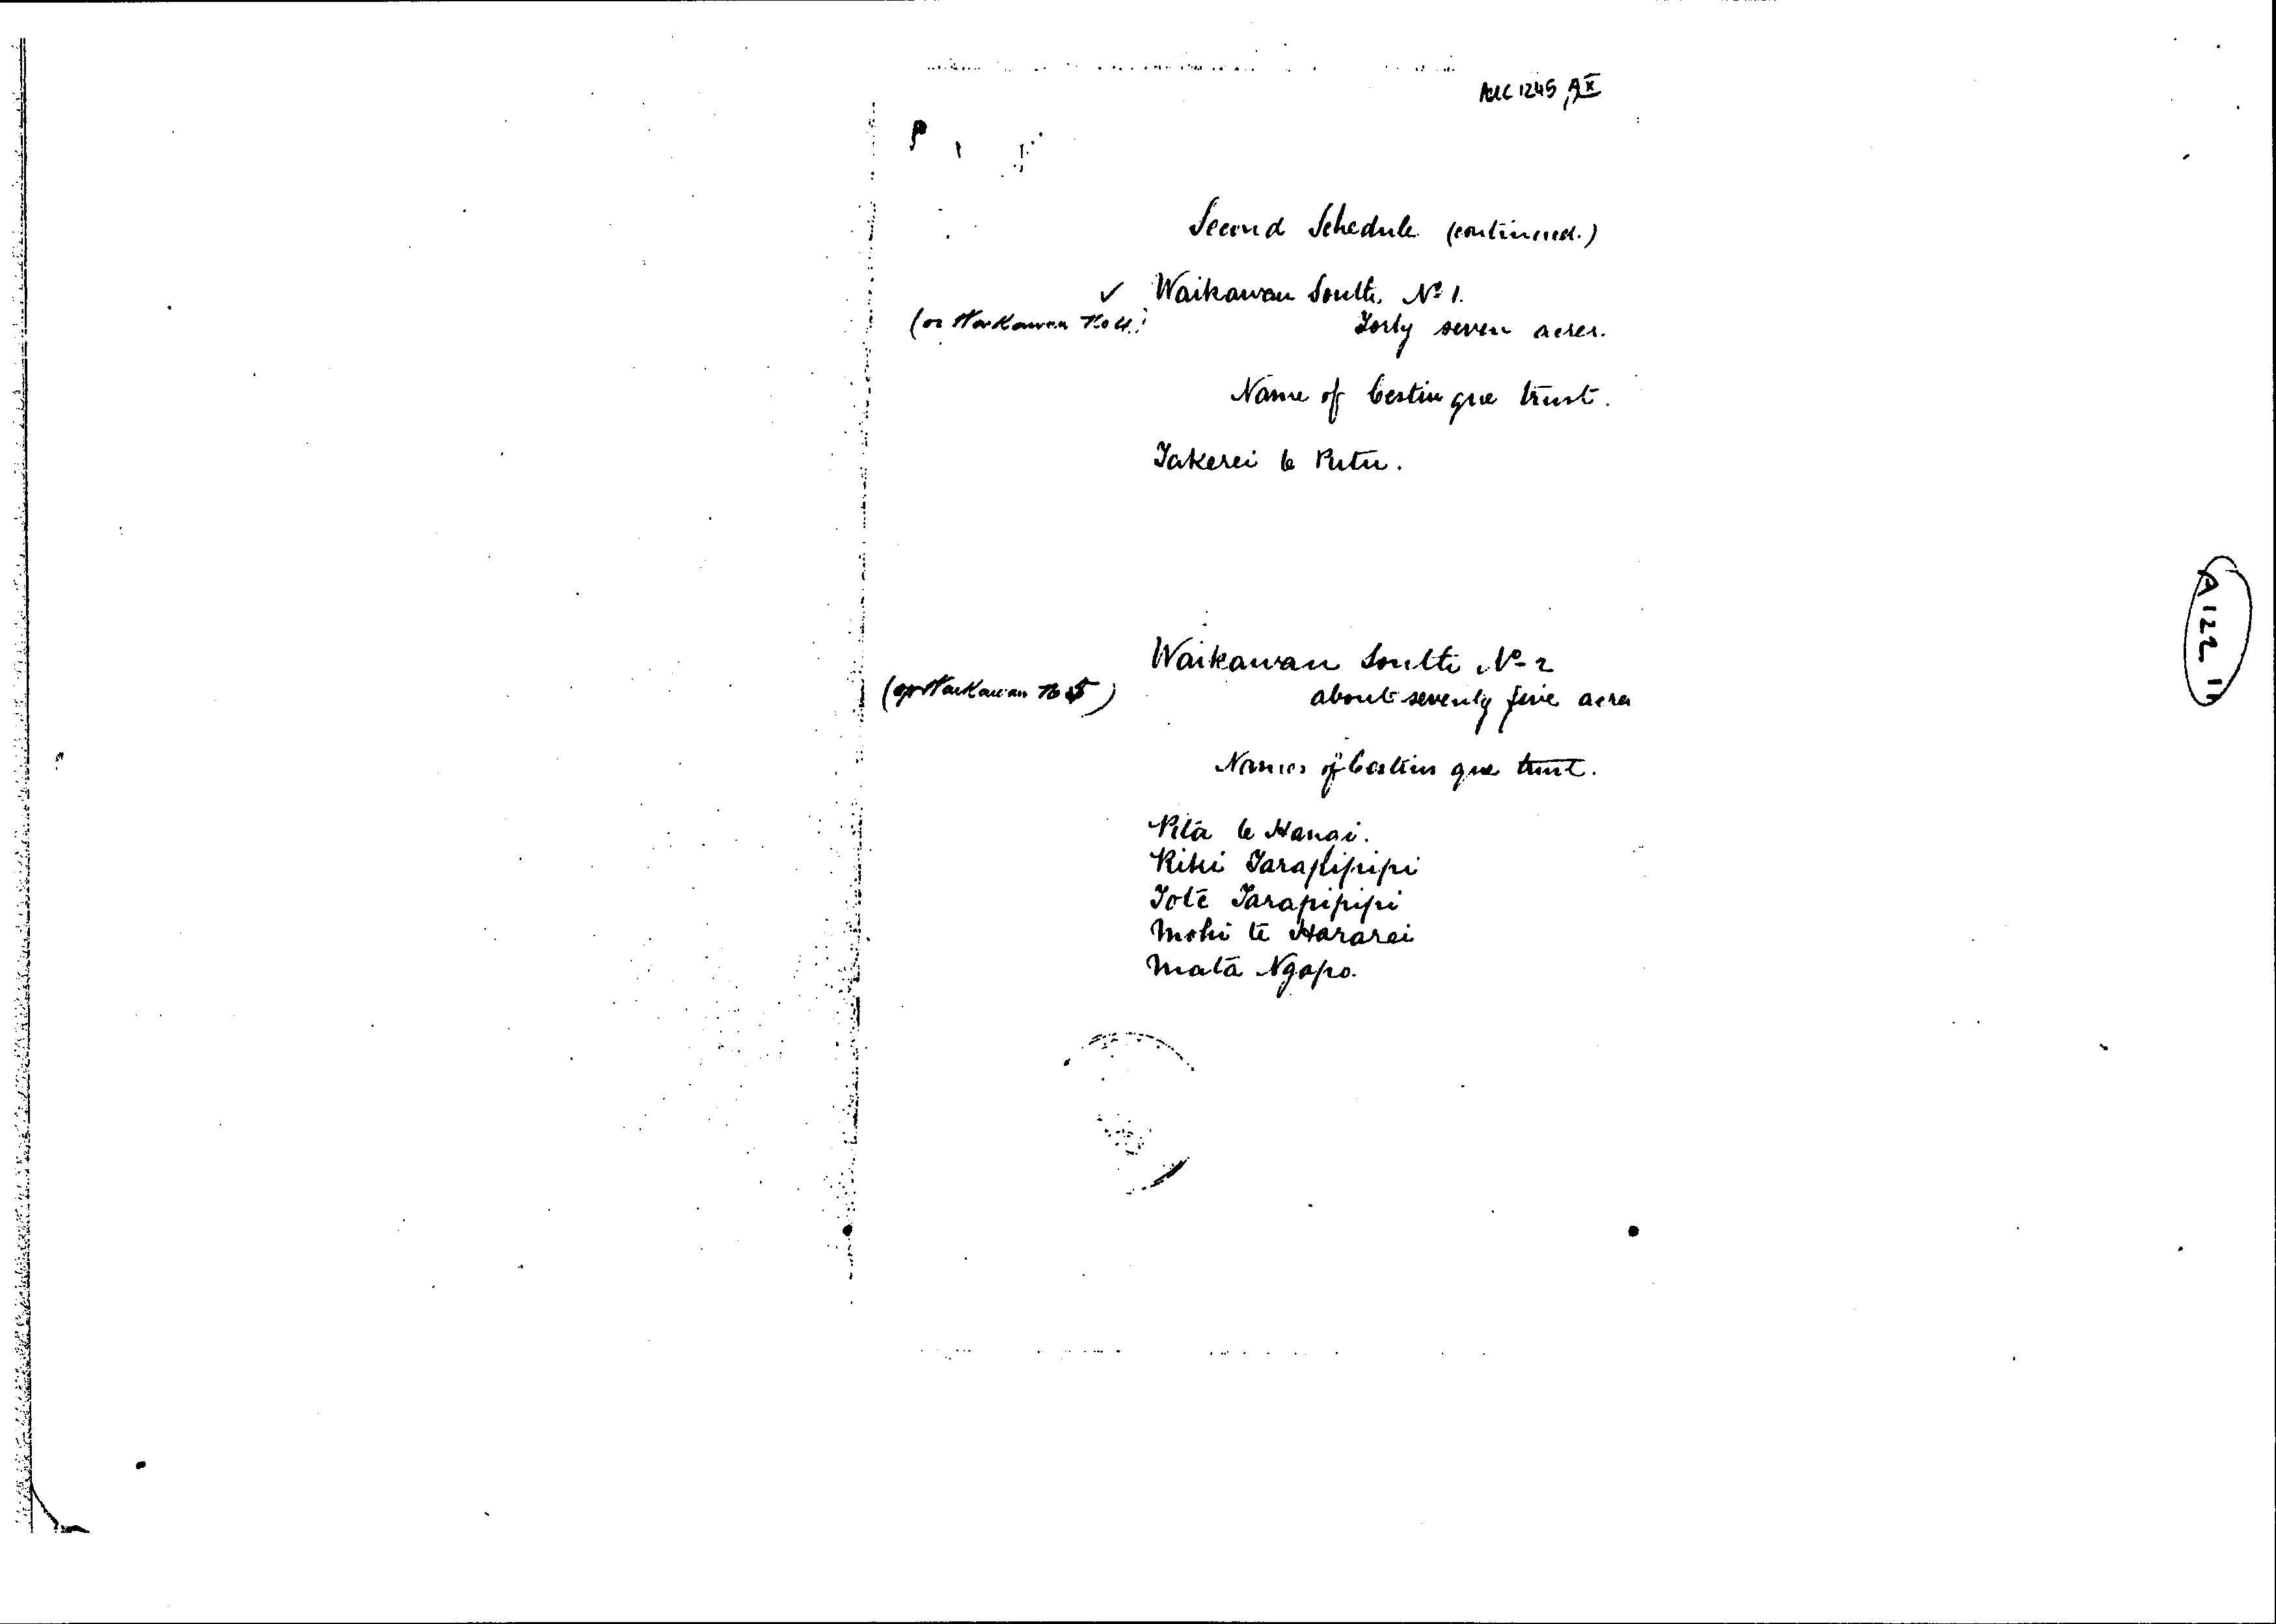 Acc 1245 AX
Second Schedule (continued.)
✓ Waikawau South. No 1.
(or Waikawau No 4.)
Forty seven acres.
Name of Cestui que trust.
Takerei te Putu.
Waikawau South No 2
(or Waikawau No 5)
about seventy five acres
Names of Cestuis que trust.
Pita te Hanai.
Rihi Tarapipipi
Tote Tarapipipi
Mohi te Hararei
Mata Ngapo.
A122